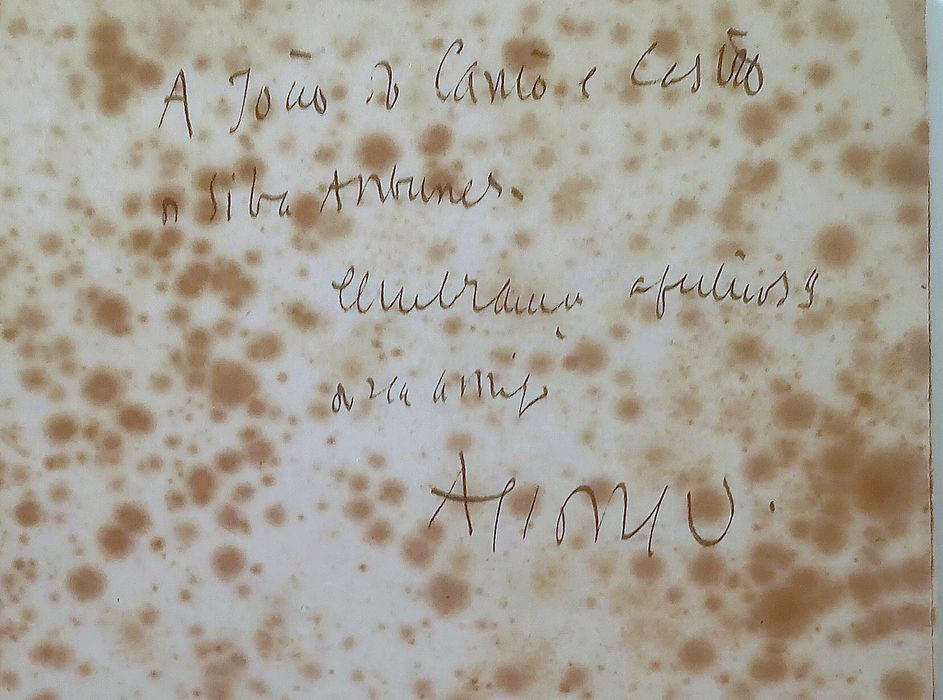 A João do Canto e Castro
da Silva Antunes.
lembrança afectuosa
do seu amigo